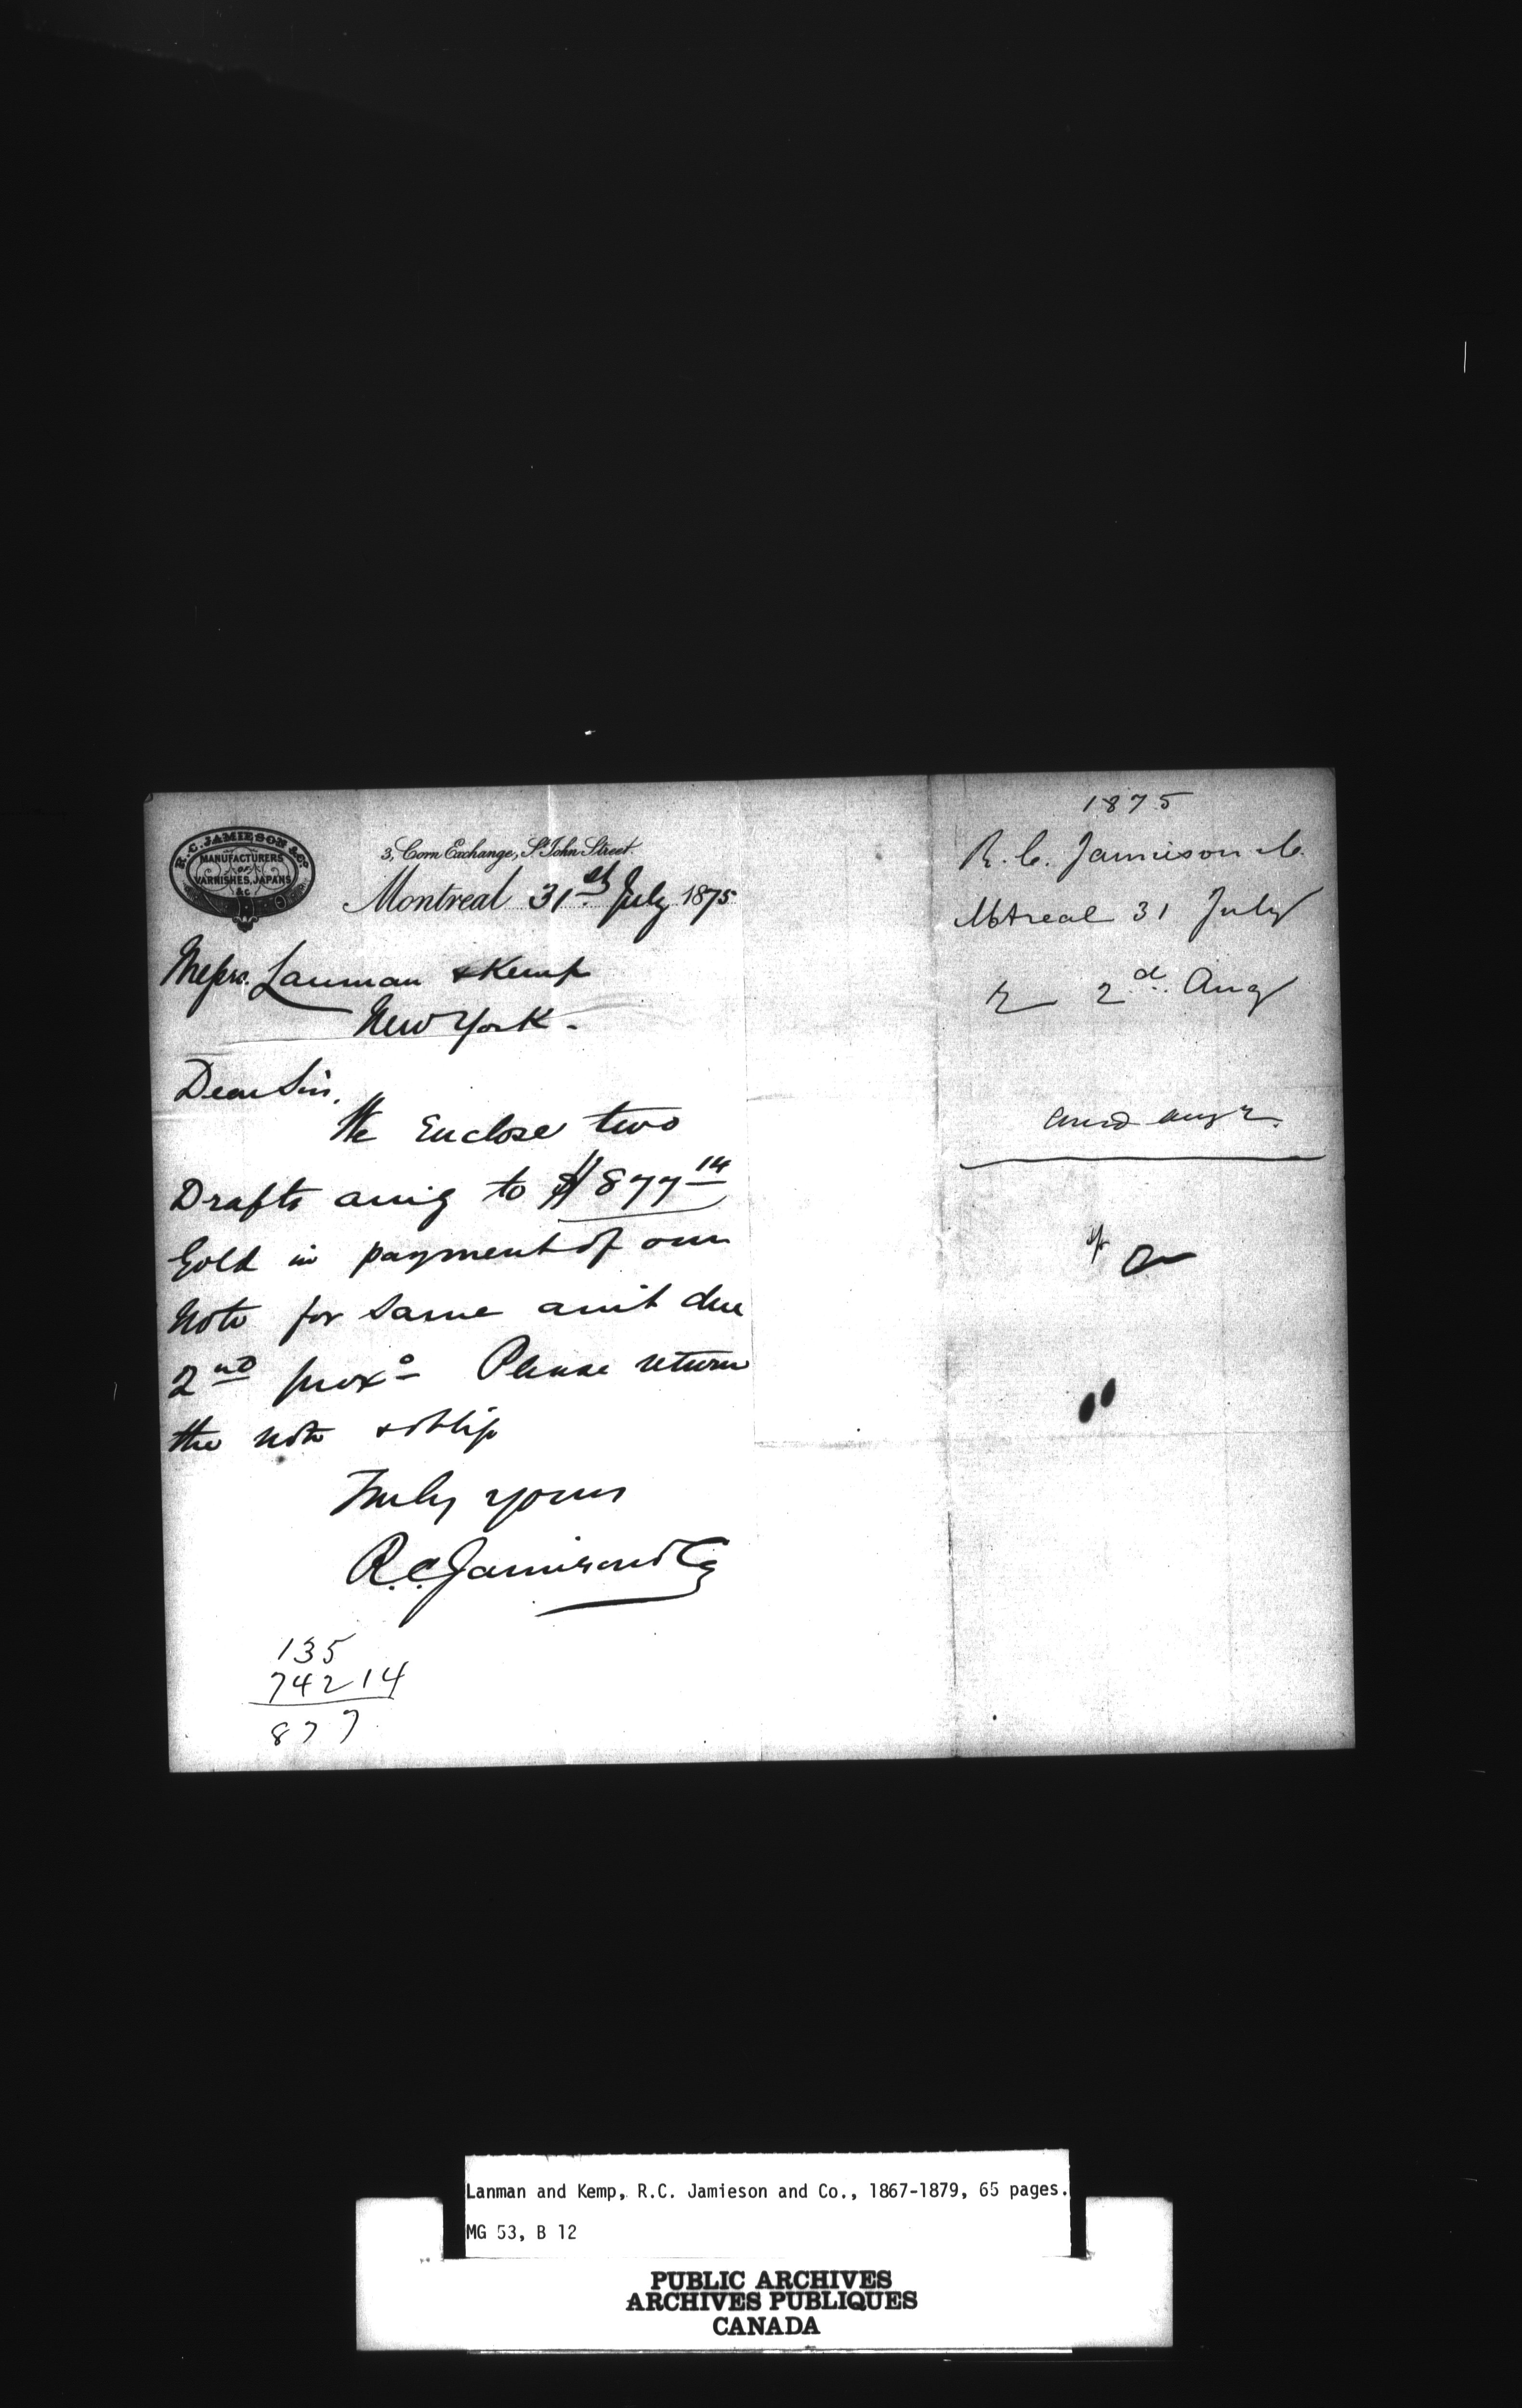 R. C. JAMIESON & Co.
MANUFACTURERS
OF
VARNISHES, JAPANS
&c
3, Corn Exchange, St. John Street.
Montreal 31st July 1875
Messrs. Lanman & Kemp
New York -
Dear Sirs,
We Enclose two
Drafts amg to $877 14
Gold in payment of our
Note for Same amt due
2nd proxo Please return
the note & oblige
Truly yours
R.C. Jamieson & Co
135
742 14
877
1875
R. C. Jamieson & Co.
Montreal 31 July
R 2d Aug
Ansd Aug 2.
Lanman and Kemp, R.C. Jamieson and Co., 1867-1879, 65 pages.
MG 53, B 12
PUBLIC ARCHIVES
ARCHIVES PUBLIQUES
CANADA